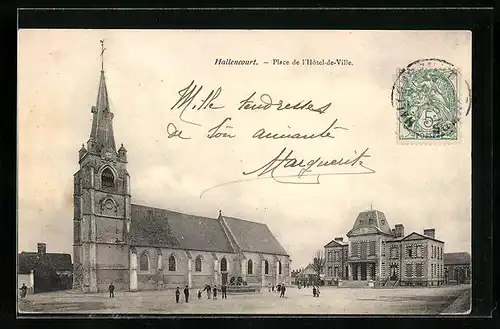 Hallencourt. — Place de l'Hôtel-de-Ville.
Mille tendresses
de ton aimante
Marguerite
5c